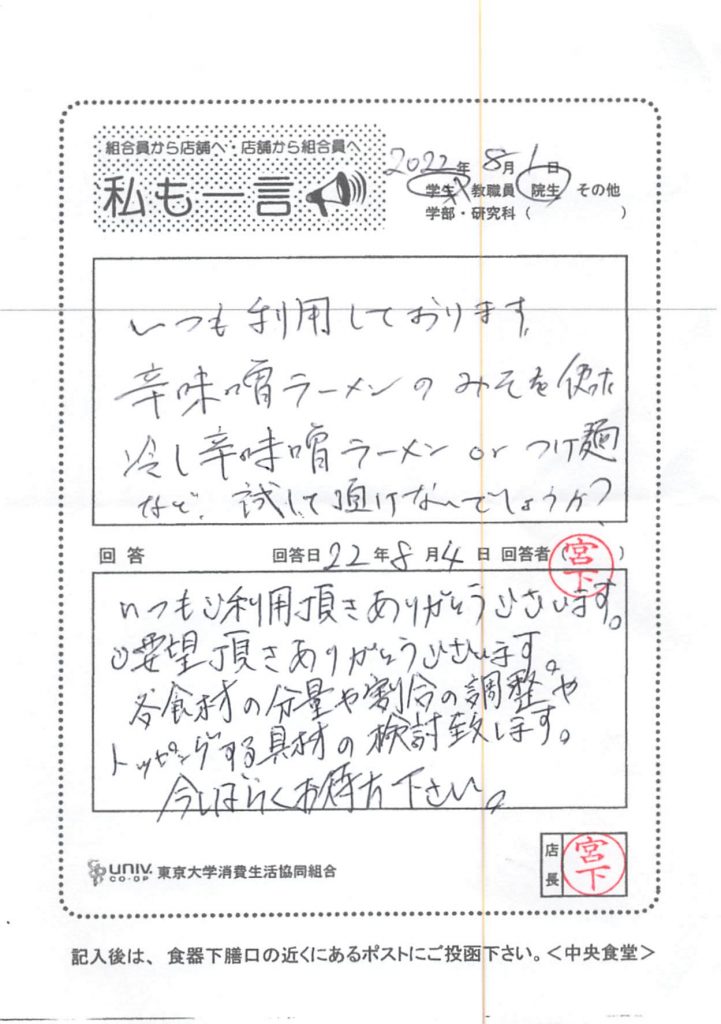 組合員から店舗へ・店舗から組合員へ
私も一言
2022年 8月 1日
学生 教職員 院生 その他
学部・研究科（ ）
いつも利用しております。
辛味噌ラーメンのみそを使った
冷し辛味噌ラーメン or つけ麺
など、試して頂けないでしょうか?
回答 回答日 22年 8月 4日 回答者（宮下）
いつもご利用頂きありがとうございます。
ご要望頂きありがとうございます。
各食材の分量や割合の調整や
トッピングする具材の検討致します。
今しばらくお待ち下さい。
UNIV. CO-OP 東京大学消費生活協同組合
店長 宮下
記入後は、食器下膳口の近くにあるポストにご投函下さい。＜中央食堂＞